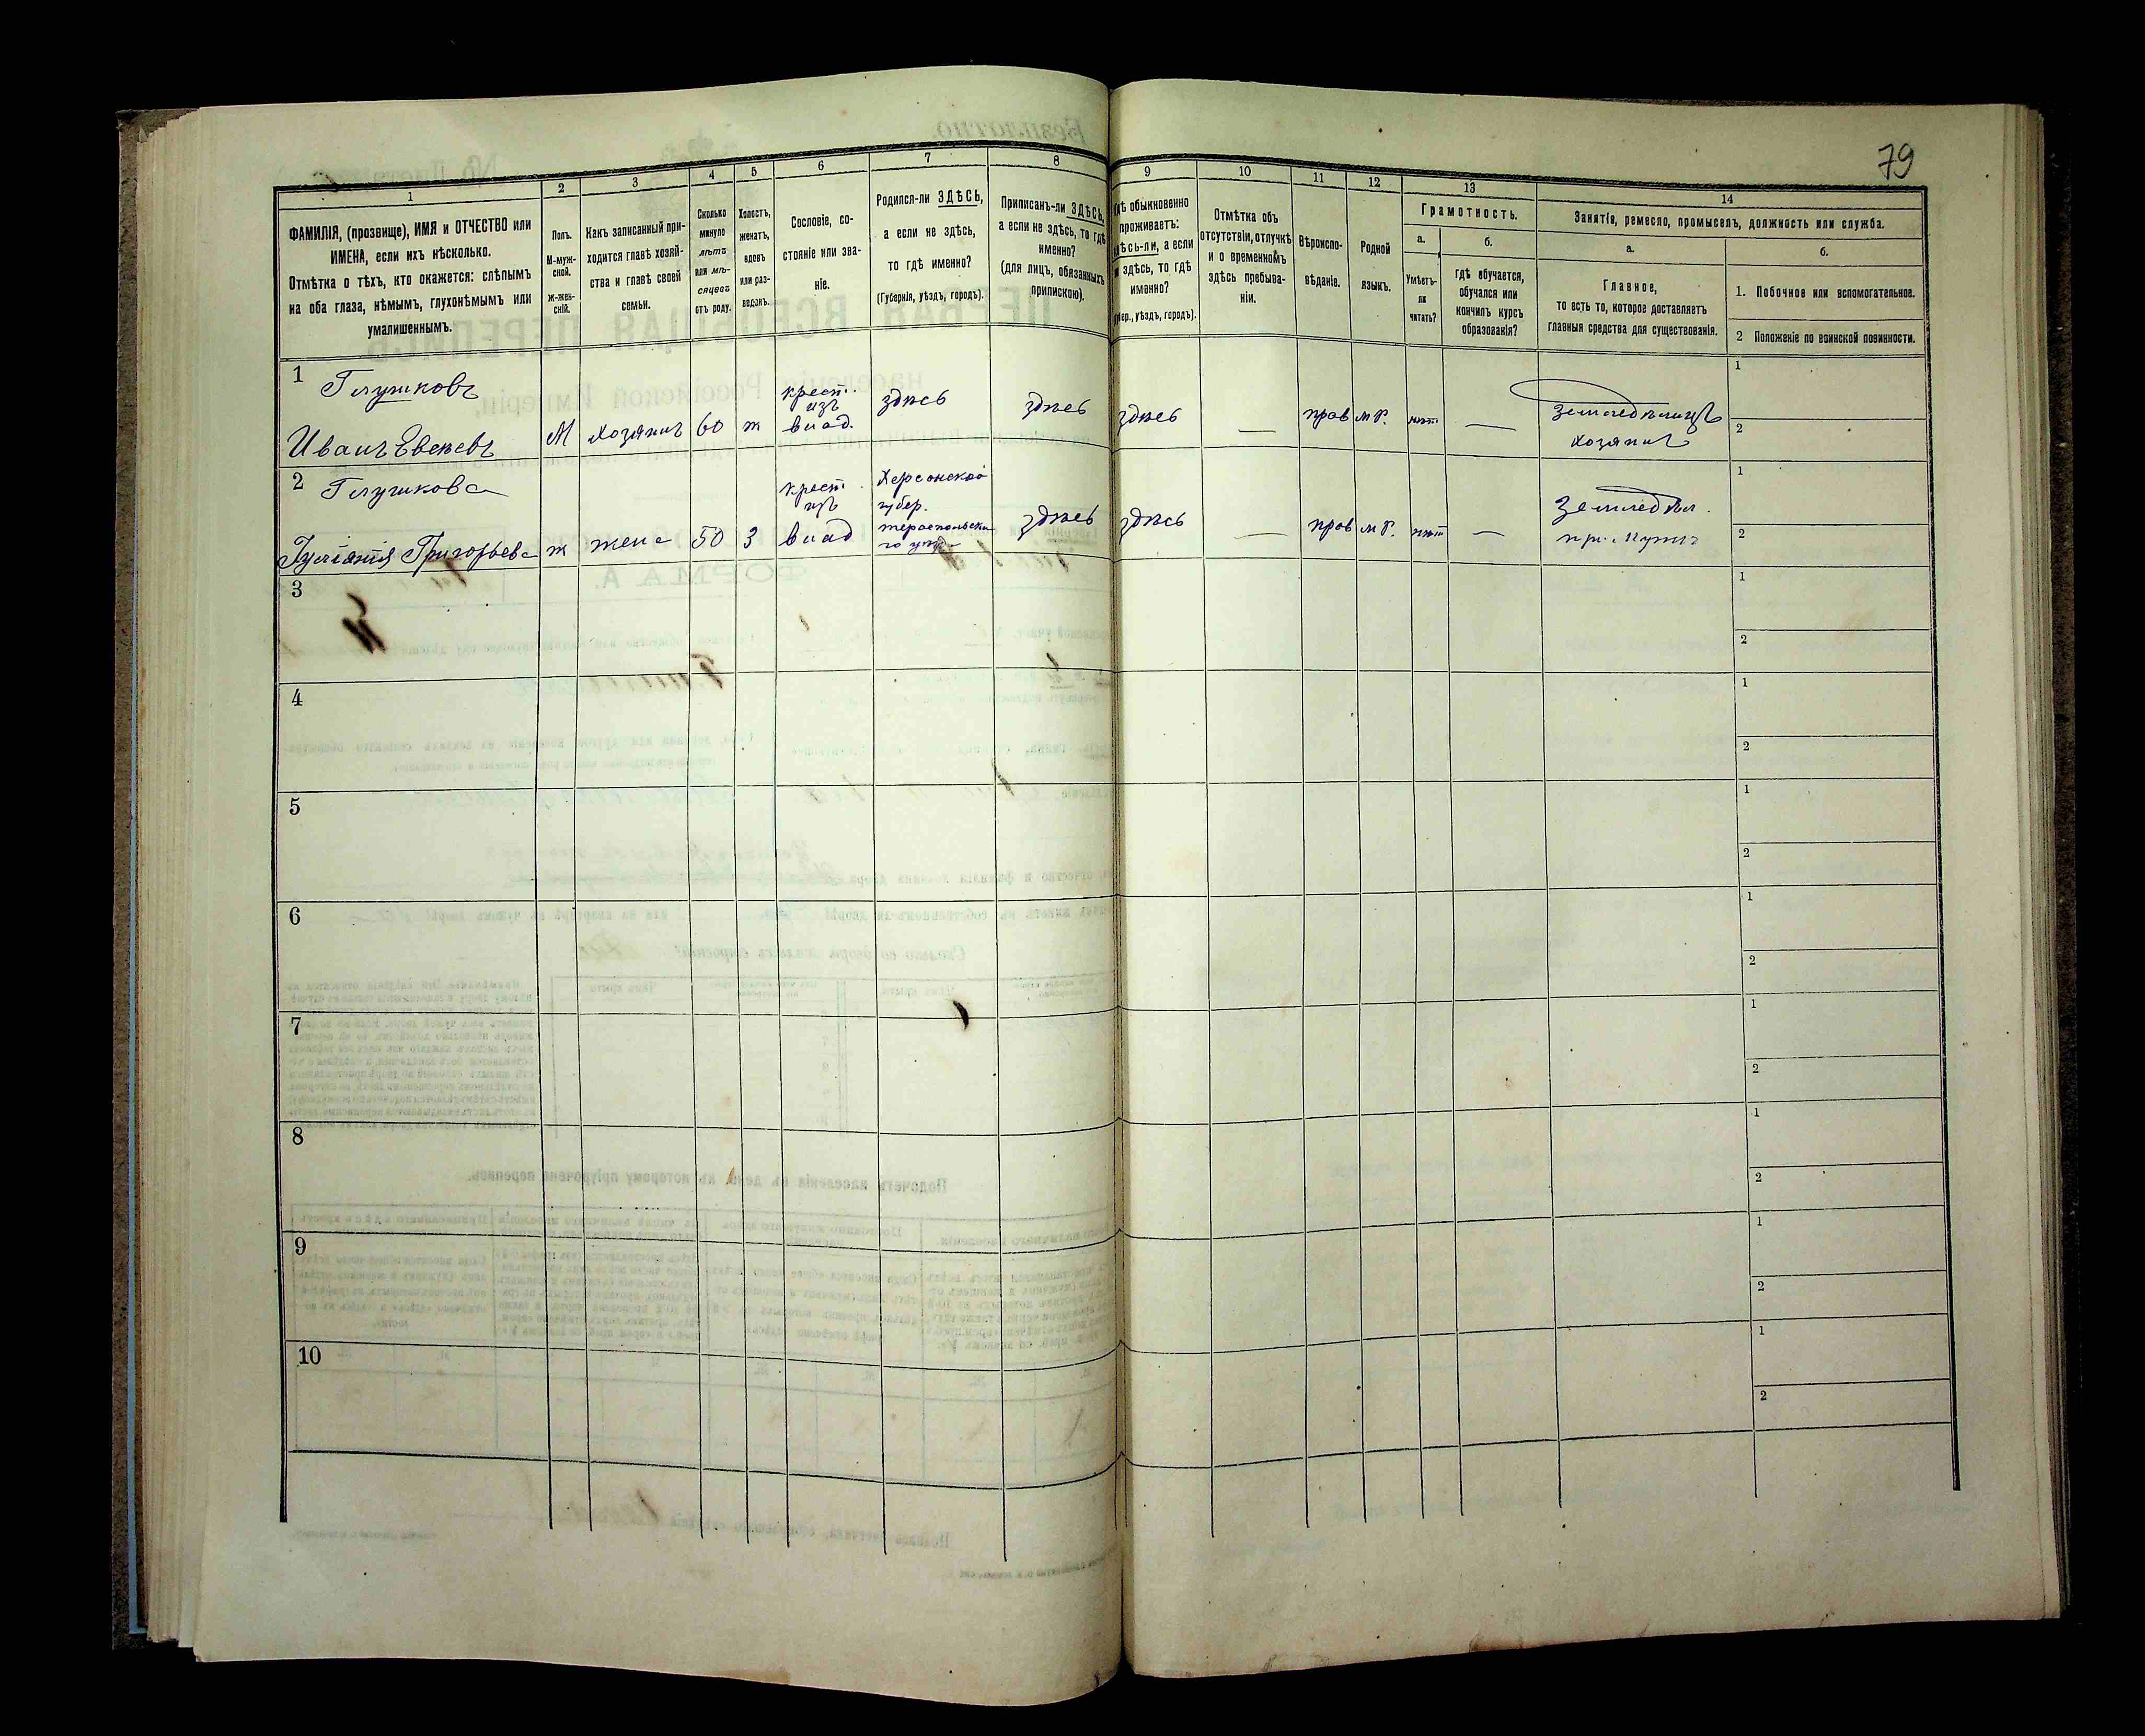 79
1
2
3
4
5
6
7
8
9
10
11
12
13
14
ФАМИЛІЯ, (прозвище), ИМЯ и ОТЧЕСТВО или
ИМЕНА, если ихъ нѣсколько.
Отмѣтка о тѣхъ, кто окажется: слѣпымъ
на оба глаза, нѣмымъ, глухонѣмымъ или
умалишеннымъ.
Полъ.
М-муж-
ской.
ж-жен-
скій.
Какъ записанный при-
ходится главѣ хозяй-
ства и главѣ своей
семьи.
Сколько
минуло
лѣтъ
или мѣ-
сяцевъ
отъ роду.
Холостъ,
женатъ,
вдовъ
или раз-
веденъ.
Сословіе, со-
стояніе или зва-
ніе.
Родился-ли ЗДѢСЬ,
а если не здѣсь,
то гдѣ именно?
(Губернія, уѣздъ, городъ).
Приписанъ-ли ЗДѢСЬ,
а если не здѣсь, то гдѣ
именно?
(для лицъ, обязанныхъ
припискою).
обыкновенно
проживаетъ:
а если
здѣсь, то гдѣ
именно?
уѣздъ, городъ).
Отмѣтка объ
отсутствіи, отлучкѣ
и о временномъ
здѣсь пребыва-
ніи.
Вѣроиспо-
вѣданіе.
Родной
языкъ.
Грамотность.
а.
б.
Умѣетъ-
ли
читать?
гдѣ обучается,
обучался или
кончилъ курсъ
образованія?
Занятіе, ремесло, промыселъ, должность или служба.
а.
б.
Главное,
то есть то, которое доставляетъ
главныя средства для существованія.
1. Побочное или вспомогательное.
2 Положеніе по воинской повинности.
1 Глушковъ
Иванъ М хозяинъ 60 ж
крест.
изъ
влад.
здѣсь здѣсь здѣсь — прав м Р. нѣтъ —
земледѣлецъ
хозяинъ
1
2
2 Глушкова
Григорьева ж жена 50 з
крест.
изъ
влад
Херсонской
губер.
здѣсь здѣсь — прав м Р. нѣтъ —
Земледѣл.
при мужѣ
1
2
3
1
2
4
1
2
5
1
2
6
1
2
7
1
2
8
1
2
9
1
2
10
1
2